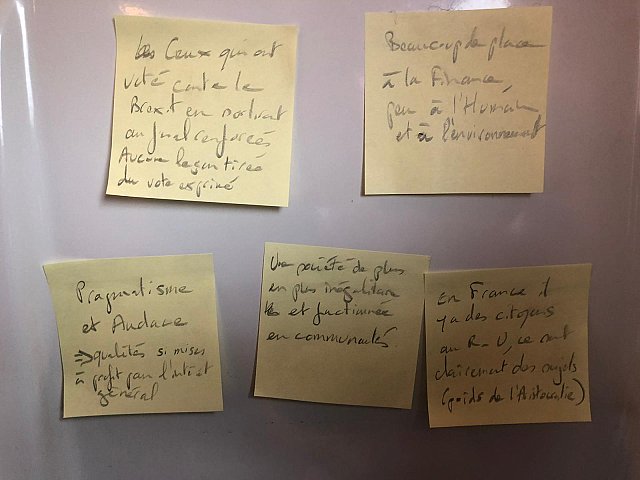 Ceux qui ont
voté contre le
Brexit en sortiront
au final renforcés
Aucune leçon tirée
du vote exprimé
Beaucoup de place
à la Finance,
peu à l'Humain
et à l'environnement
Pragmatisme
et Audace
=> qualités si mises
à profit pour l'intérêt
général
Une société de plus
en plus inégalitaire
et factionnée
en communautés
En France il
y a des citoyens
au R-U, ce sont
clairement des sujets
(poids de l'Aristocratie)